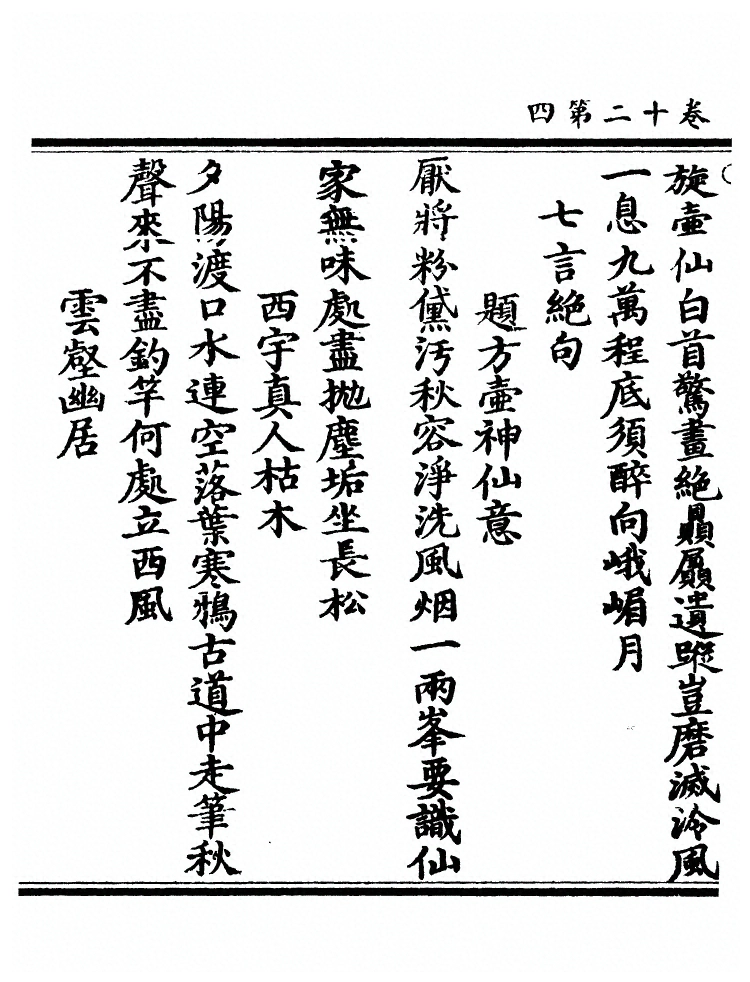 卷十二第四
旋壺仙白首驚畫絕贔屭遺蹤豈磨滅泠風
一息九萬程底須醉向峨嵋月
七言絕句
題方壺神仙意
厭將粉黛汚秋容淨洗風烟一兩峯要識仙
家無味處盡拋塵垢坐長松
西宇真人枯木
夕陽渡口水連空落葉寒鴉古道中走筆秋
聲來不盡釣竿何處立西風
雲壑幽居